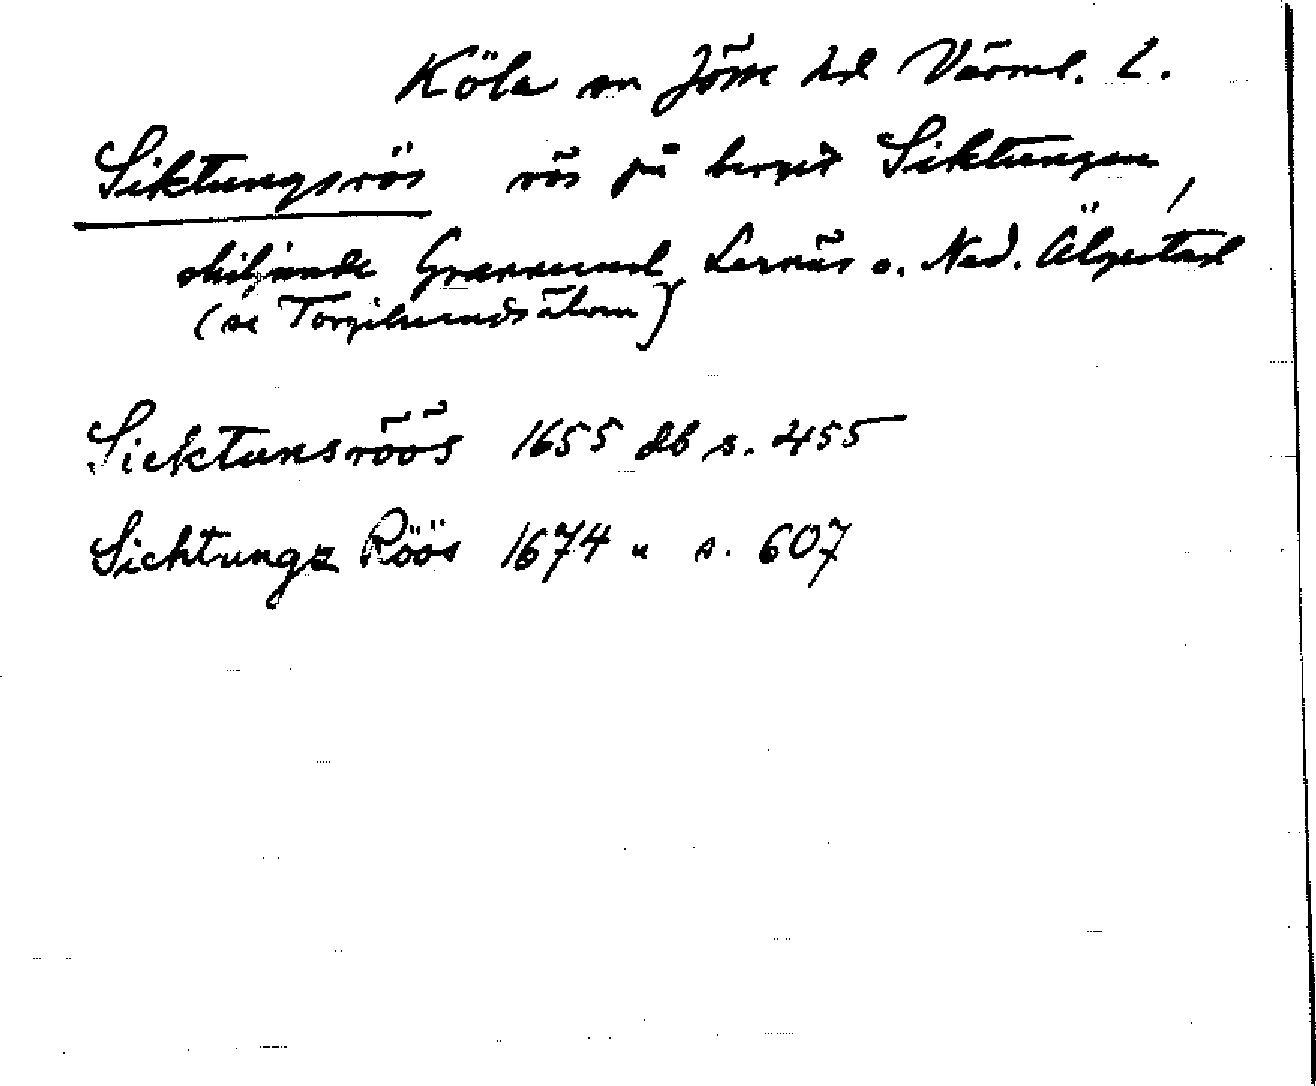 Köla sn Jösse hd Värml. L.
Siktungsrös rös på berget Siktungen,
skiljande Grannsund, Lernäs o. Ned. Älgestad
(se Torgilsrudsälven)
Sicktunsröös 1655 db s. 455
Sichtungz Röös 1674 " s. 607